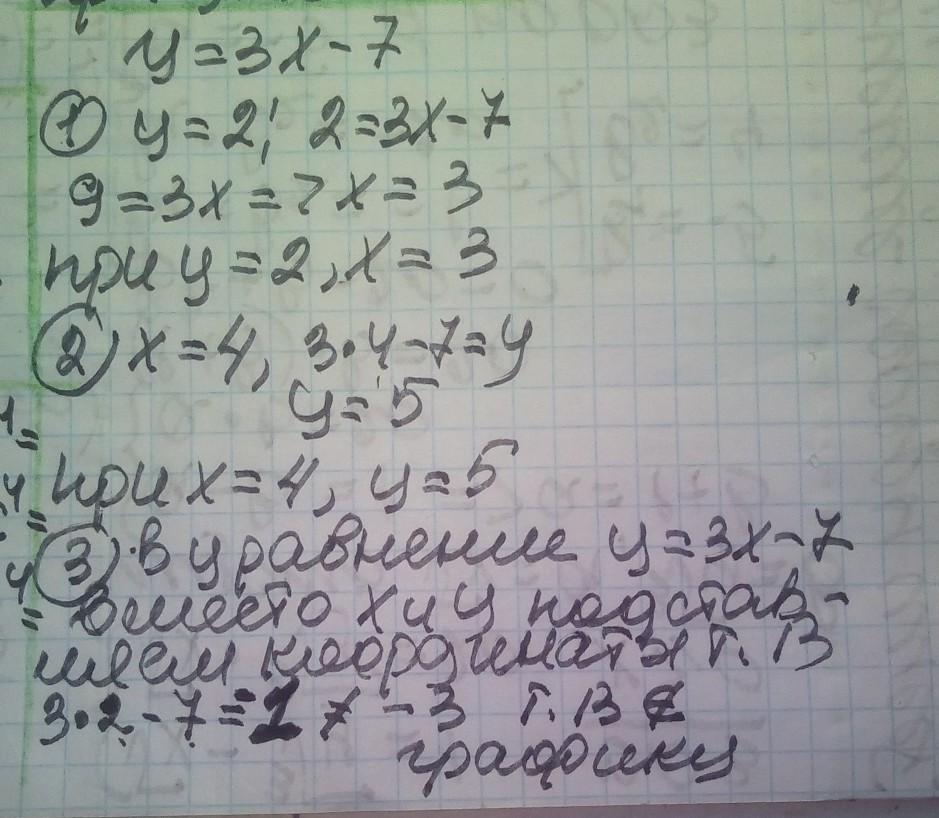 y = 3x - 7
① y = 2; 2 = 3x - 7
9 = 3x => x = 3
при y = 2, x = 3
② x = 4, 3·4 - 7 = y
y = 5
при x = 4, y = 5
③ в уравнение y = 3x - 7
вместо x и y подстав-
ляем координаты т. B
3·2 - 7 = -1 ≠ -3 т. B ∉
графику